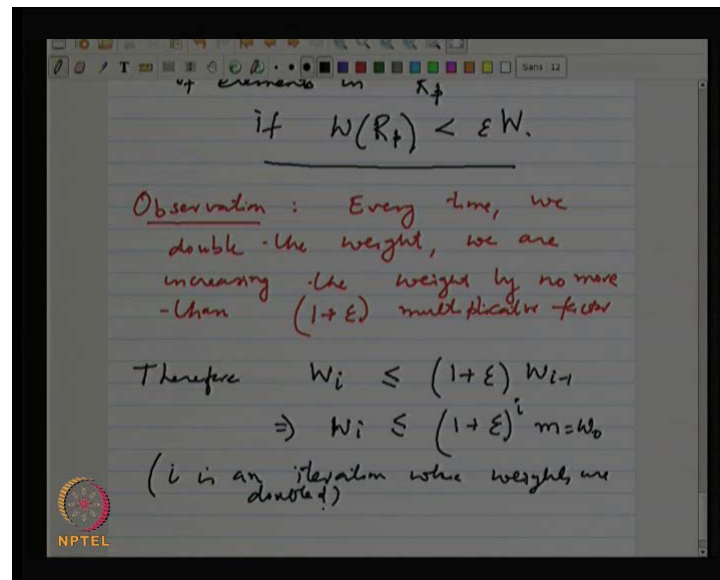 T
Sans 12
of elements in R_p
if W(R_p) < ε W.
Observation : Every time, we
double the weight, we are
increasing the weight by no more
than (1+ε) multiplicative factor
Therefore W_i ≤ (1+ε) W_{i-1}
⇒ W_i ≤ (1+ε)^i m=W_0
(i is an iteration where weights are
doubled)
NPTEL